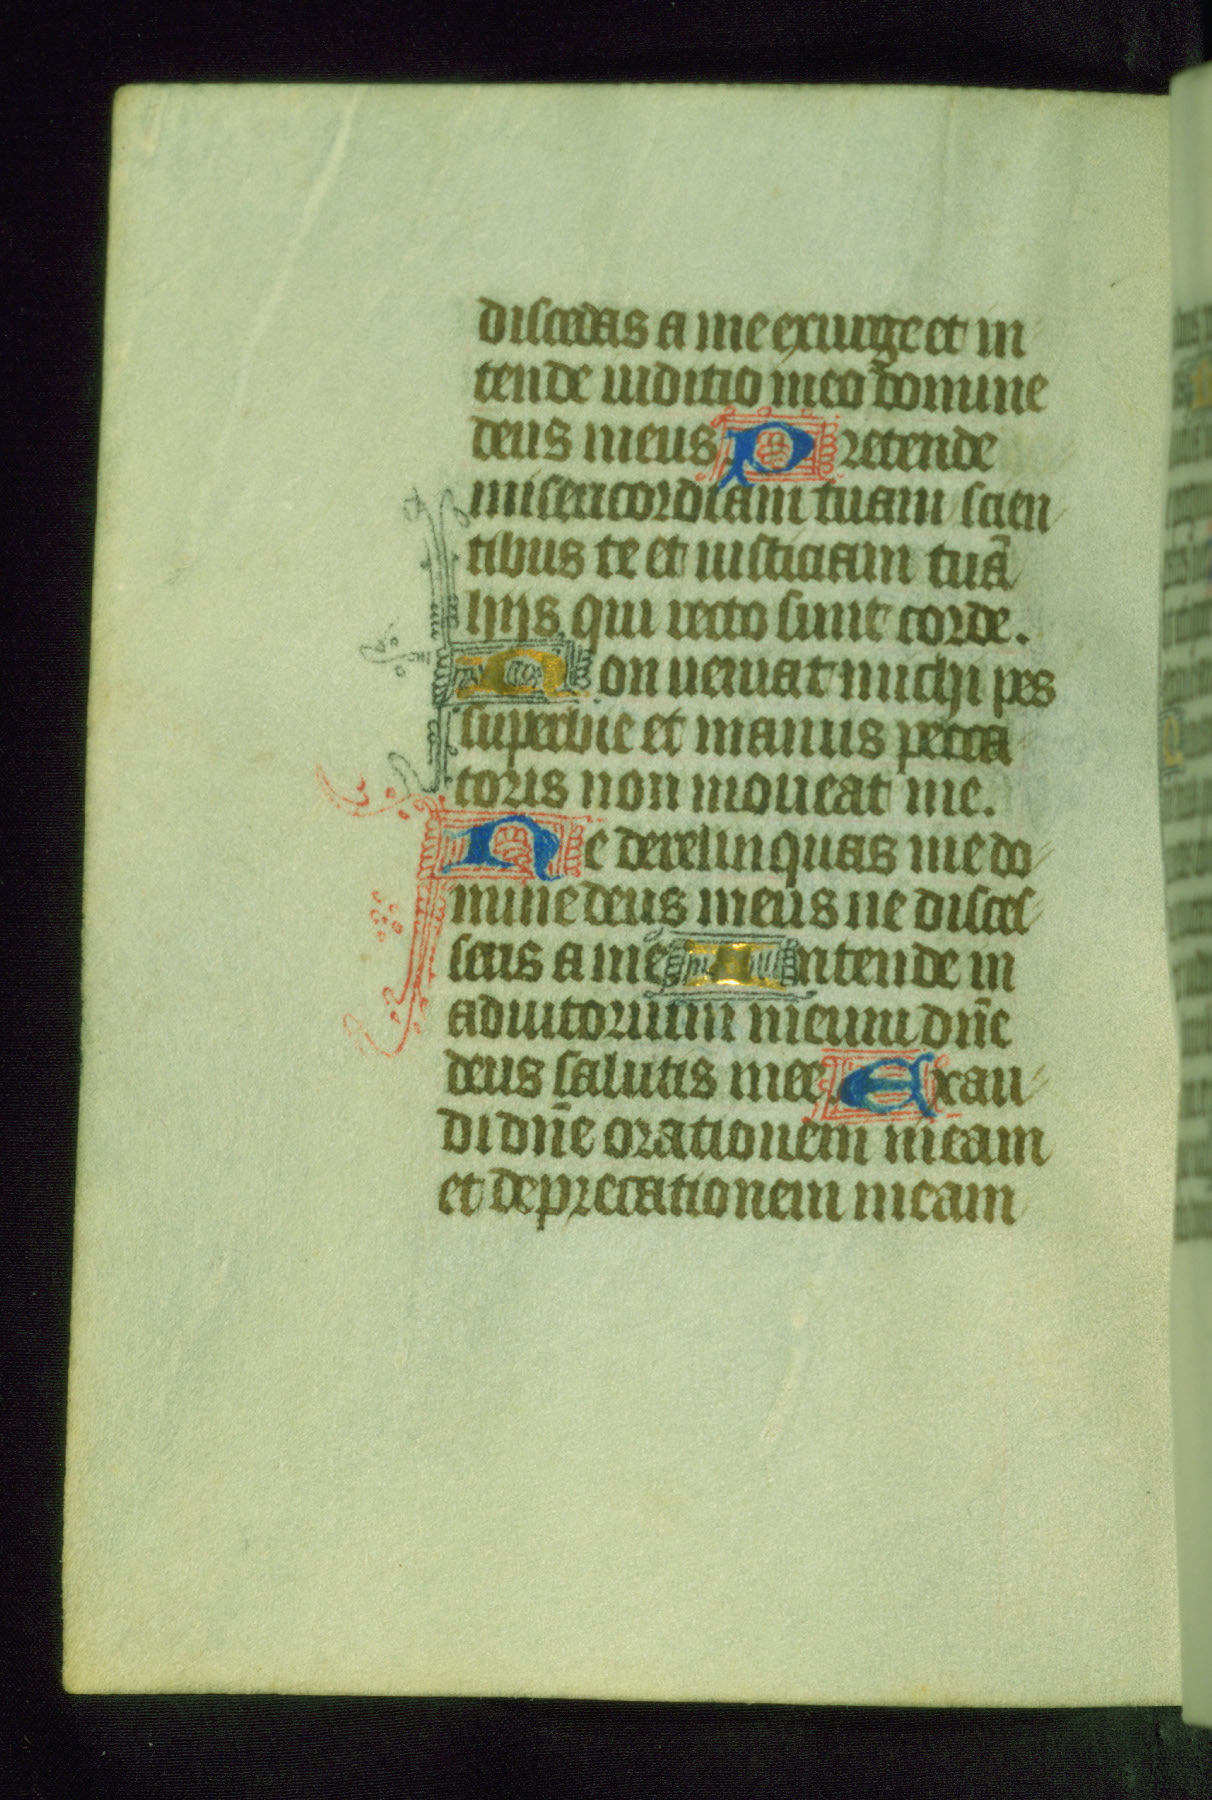 discedas a me exurge et in
tende iuditio meo domine
deus meus. Pretende
misericordiam tuam scien
tibus te et iusticiam tuā
hijs qui recto sunt corde.
Non veniat michi pes
superbie et manus pecca
toris non moueat me.
Ne derelinquas me do
mine deus meus ne disces
seris a me. Intende in
adiutorium meum dn̄e
deus salutis mee. Exau
di dn̄e orationem meam
et deprecationem meam